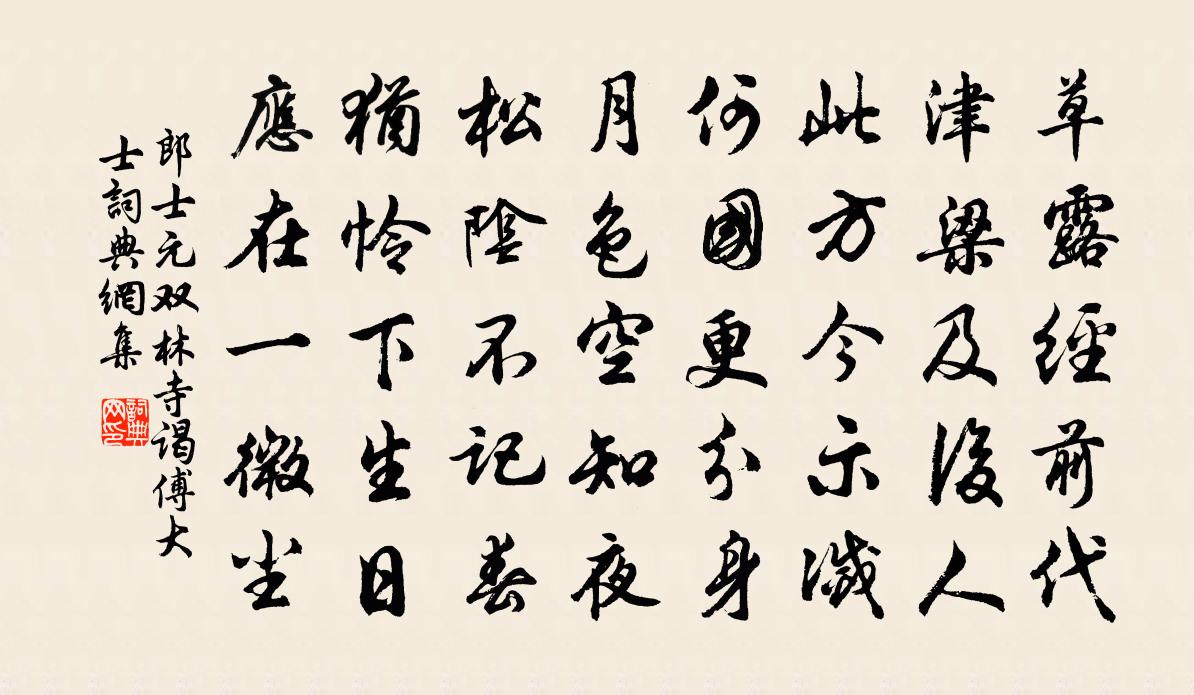 草露經前代
津梁及後人
此方今示滅
何國更分身
月色空知夜
松陰不記春
猶怜下生日
應在一微尘
郎士元双林寺谒傅大
士詞典網集
詞典
网印